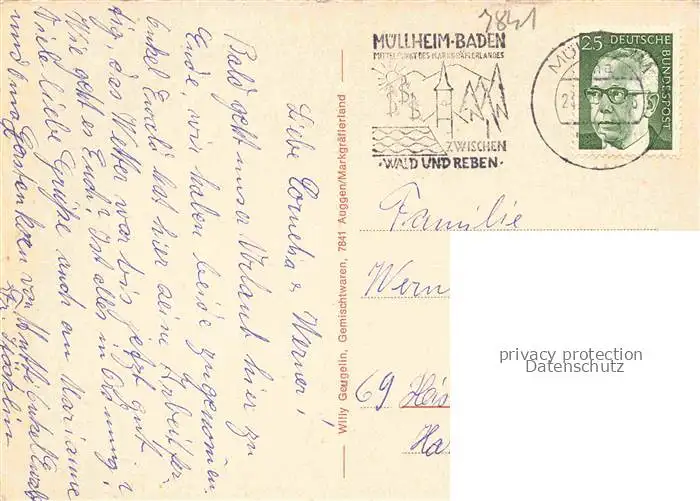 7841
MÜLLHEIM-BADEN
MITTELPUNKT DES MARKGRÄFLERLANDES
ZWISCHEN
·WALD UND REBEN·
25 DEUTSCHE BUNDESPOST
Liebe Cornelia & Werner!
Bald geht unser Urlaub hier zu
Ende wir haben beide zugenommen.
Onkel Ewald hat hier seine Arbeit fer-
tig, das Wetter war bis jetzt gut
Wie geht es Euch? Ist alles in Ordnung?
Viele liebe Grüße auch an Marianne
und Oma Gerstenkorn von Mutti Onkel Ewald
Willy Geugelin, Gemischtwaren, 7841 Auggen/Markgräflerland
Familie
Wern
69
privacy protection
Datenschutz